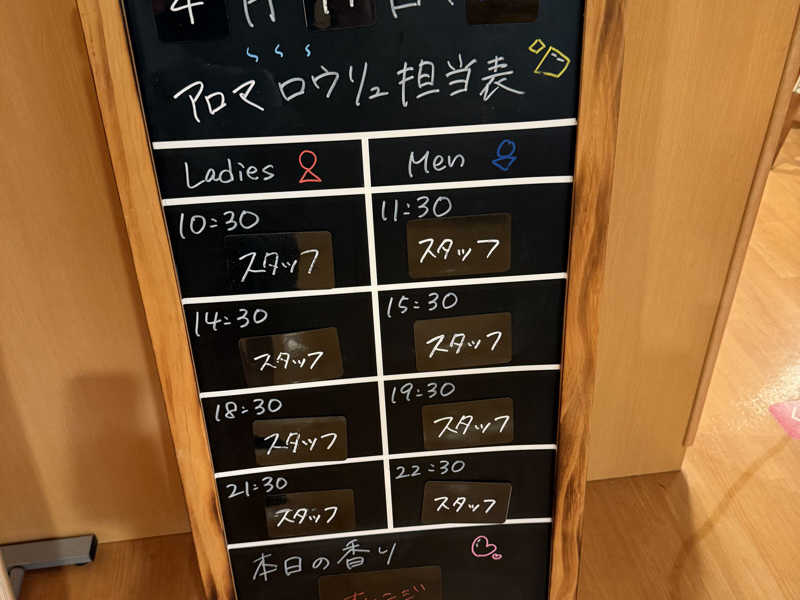 4月 11日
アロマロウリュ担当表
Ladies Men
10:30 11:30
スタッフ スタッフ
14:30 15:30
スタッフ スタッフ
18:30 19:30
スタッフ スタッフ
21:30 22:30
スタッフ スタッフ
本日の香り
オレンジ